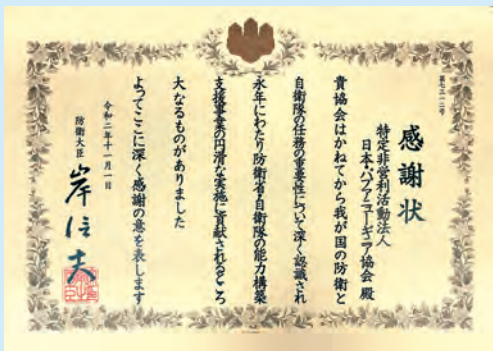 第七三一二号
感謝状
特定非営利活動法人
日本・パプアニューギニア協会 殿
貴協会はかねてから我が国の防衛と
自衛隊の任務の重要性について深く認識され
永年にわたり防衛省・自衛隊の能力構築
支援事業の円滑な実施に貢献されるところ
大なるものがありました
よってここに深く感謝の意を表します
令和二年十一月一日
防衛大臣 岸信夫